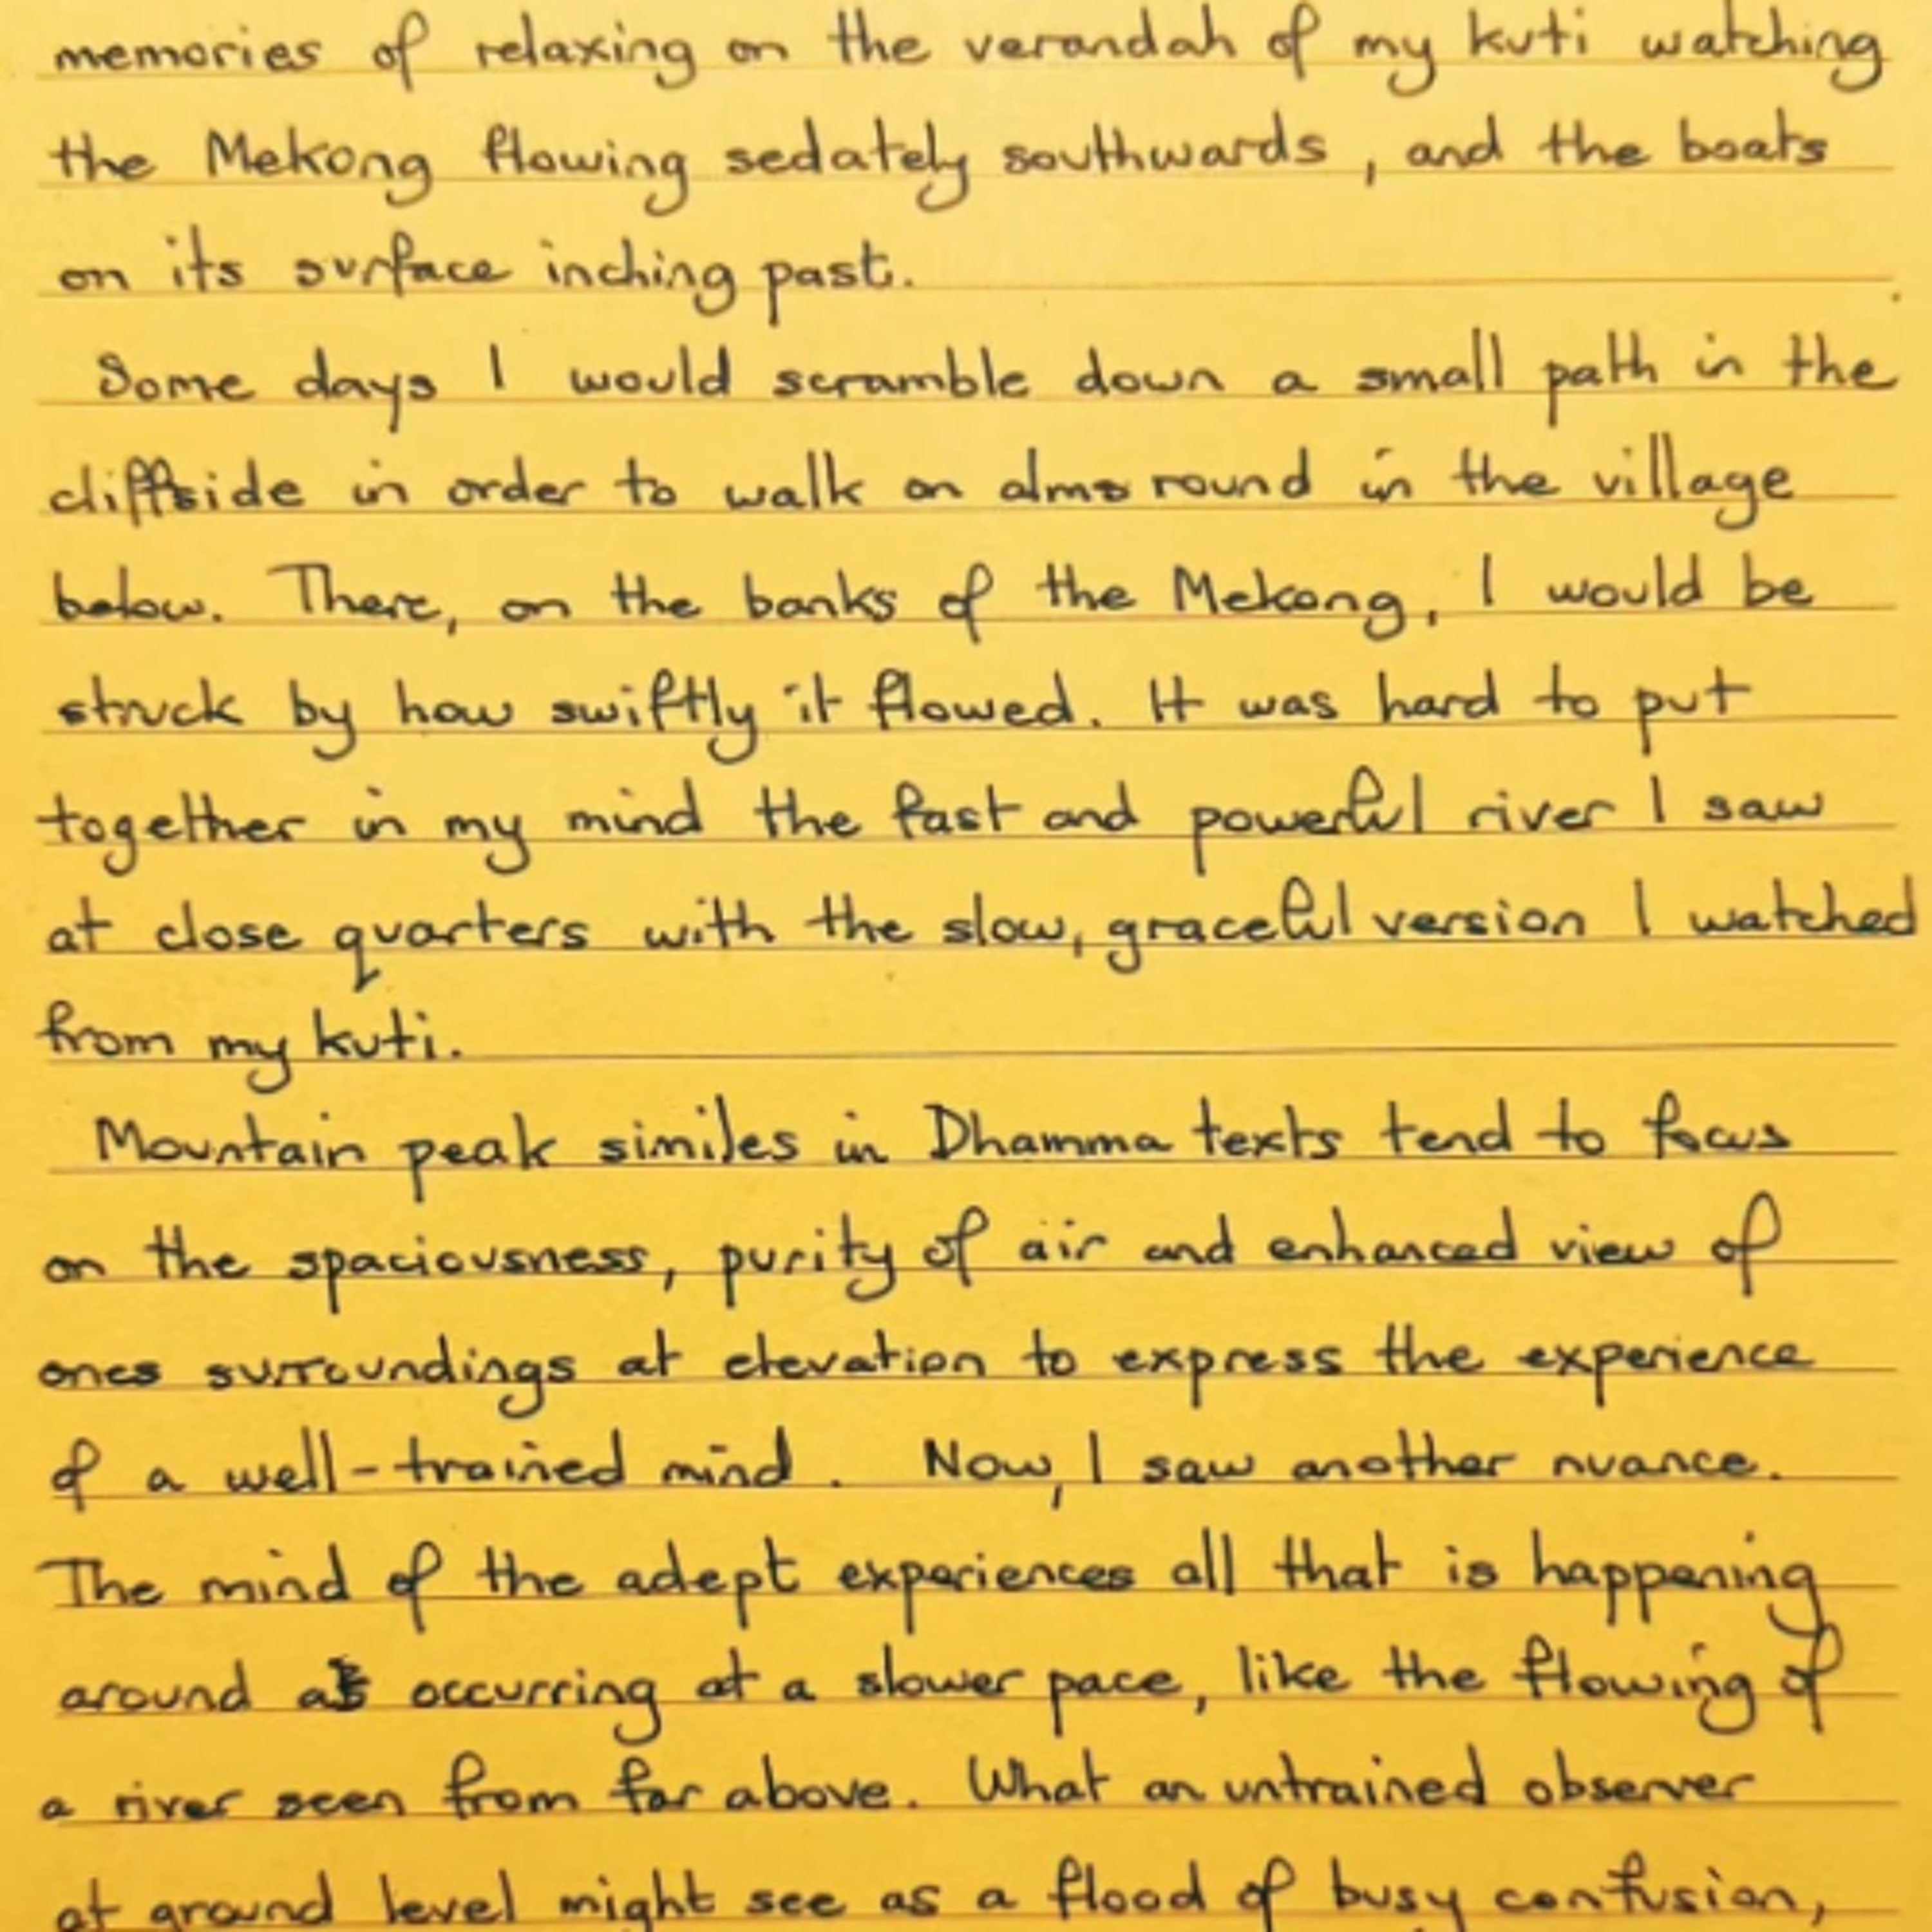 memories of relaxing on the verandah of my kuti watching
the Mekong flowing sedately southwards, and the boats
on its surface inching past.
Some days I would scramble down a small path in the
cliffside in order to walk on alms round in the village
below. There, on the banks of the Mekong, I would be
struck by how swiftly it flowed. It was hard to put
together in my mind the fast and powerful river I saw
at close quarters with the slow, graceful version I watched
from my kuti.
Mountain peak similes in Dhamma texts tend to focus
on the spaciousness, purity of air and enhanced view of
ones surroundings at elevation to express the experience
of a well-trained mind. Now, I saw another nuance.
The mind of the adept experiences all that is happening
around as occurring at a slower pace, like the flowing of
a river seen from far above. What an untrained observer
at ground level might see as a flood of busy confusion,